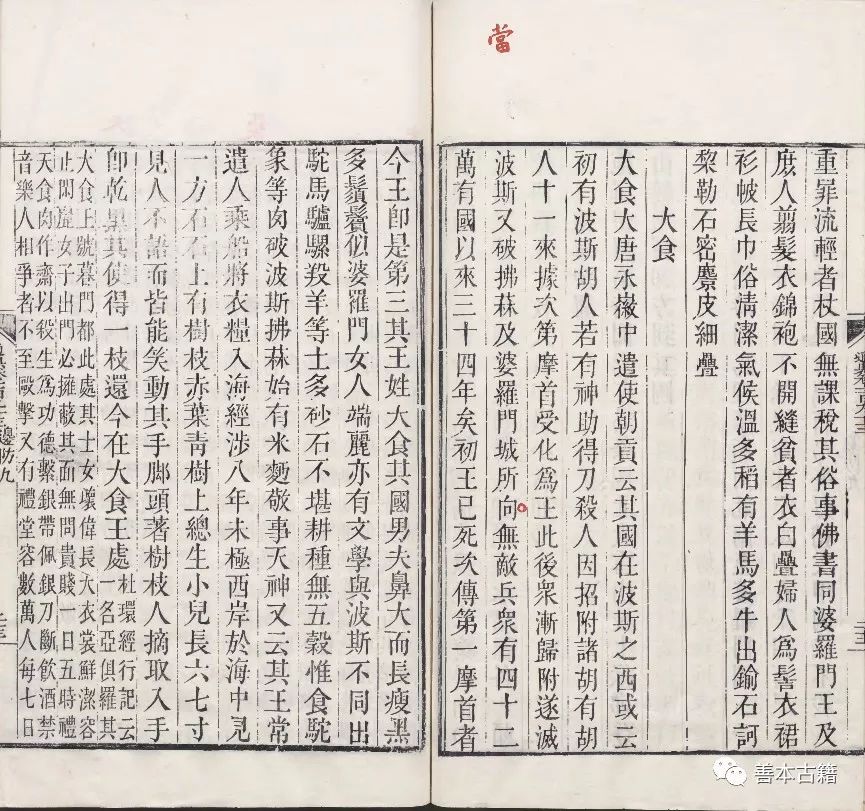 當
重罪流輕者杖國無課稅其俗事佛書同婆羅門王及
庶人翦髮衣錦袍不開縫貧者衣白疊婦人為髻衣裙
衫帔長巾俗清潔氣候溫多稻有羊馬多牛出鍮石訶
黎勒石密麖皮細疊
大食
大食大唐永徽中遣使朝貢云其國在波斯之西或云
初有波斯胡人若有神助得刀殺人因招附諸胡有胡
人十一來據次第摩首受化為王此後衆漸歸附遂滅
波斯又破拂菻及婆羅門城所向無敵兵衆有四十二
萬有國以來三十四年矣初王已死次傳第一摩首者
今王卽是第三其王姓大食其國男夫鼻大而長瘦黑
多鬚鬢似婆羅門女人端麗亦有文學與波斯不同出
駝馬驢騾羖羊等土多砂石不堪耕種無五穀惟食駝
象等肉破波斯拂菻始有米麪敬事天神又云其王常
遣人乘船將衣糧入海經涉八年未極西岸於海中見
一方石石上有樹枝赤葉青樹上總生小兒長六七寸
見人不語而皆能笑動其手脚頭著樹枝人摘取入手
卽乾黑其使得一枝還今在大食王處杜環經行記云
一名亞俱羅其
大食王號暮門都此處其士女瓌偉長大衣裳鮮潔容
止閑麗女子出門必擁蔽其面無問貴賤一日五時禮
天食肉作齋以殺生為功德繫銀帶佩銀刀斷飲酒禁
音樂人相爭者不至毆擊又有禮堂容數萬人每七日
邊防九
善本古籍